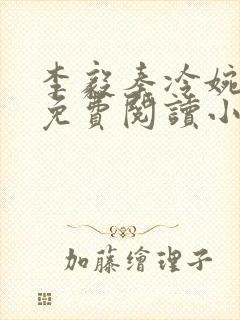 李毅秦冷婉
免費閱讀小
加藤繪理子